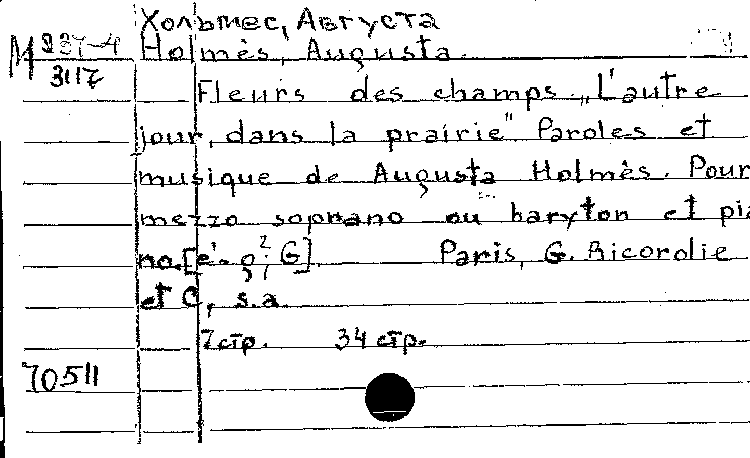 Хольмес, Августа
М 937-4 Holmès, Augusta.
3117
Fleurs des champs „L'autre
jour, dans la prairie" Paroles et
musique de Augusta Holmès. Pour
mezzo soprano ou baryton et pia
no. [e'- g²; G]. Paris, G. Ricorolie
et C, s.a.
7 стр. 34 стр.
70511